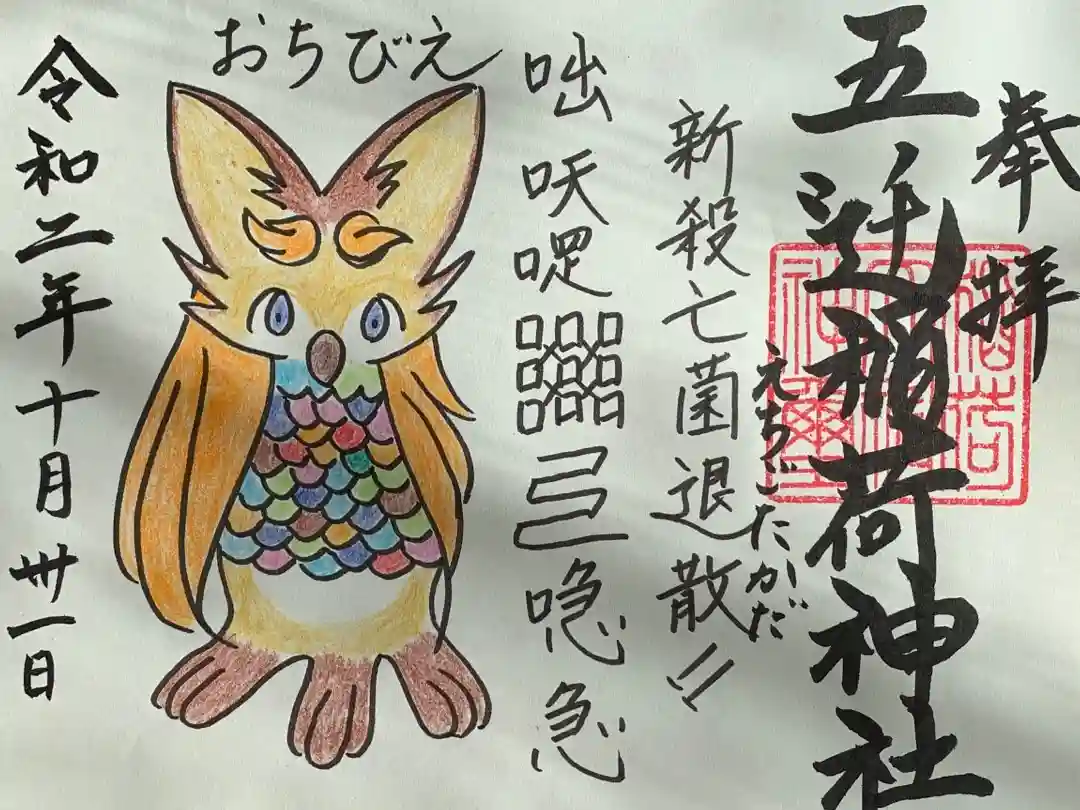 奉拝
五辻稲荷神社
えちごたかだ
新殺亡菌退散!!
咄吠哫
弓喼急
おちびえ
令和二年十月卅一日